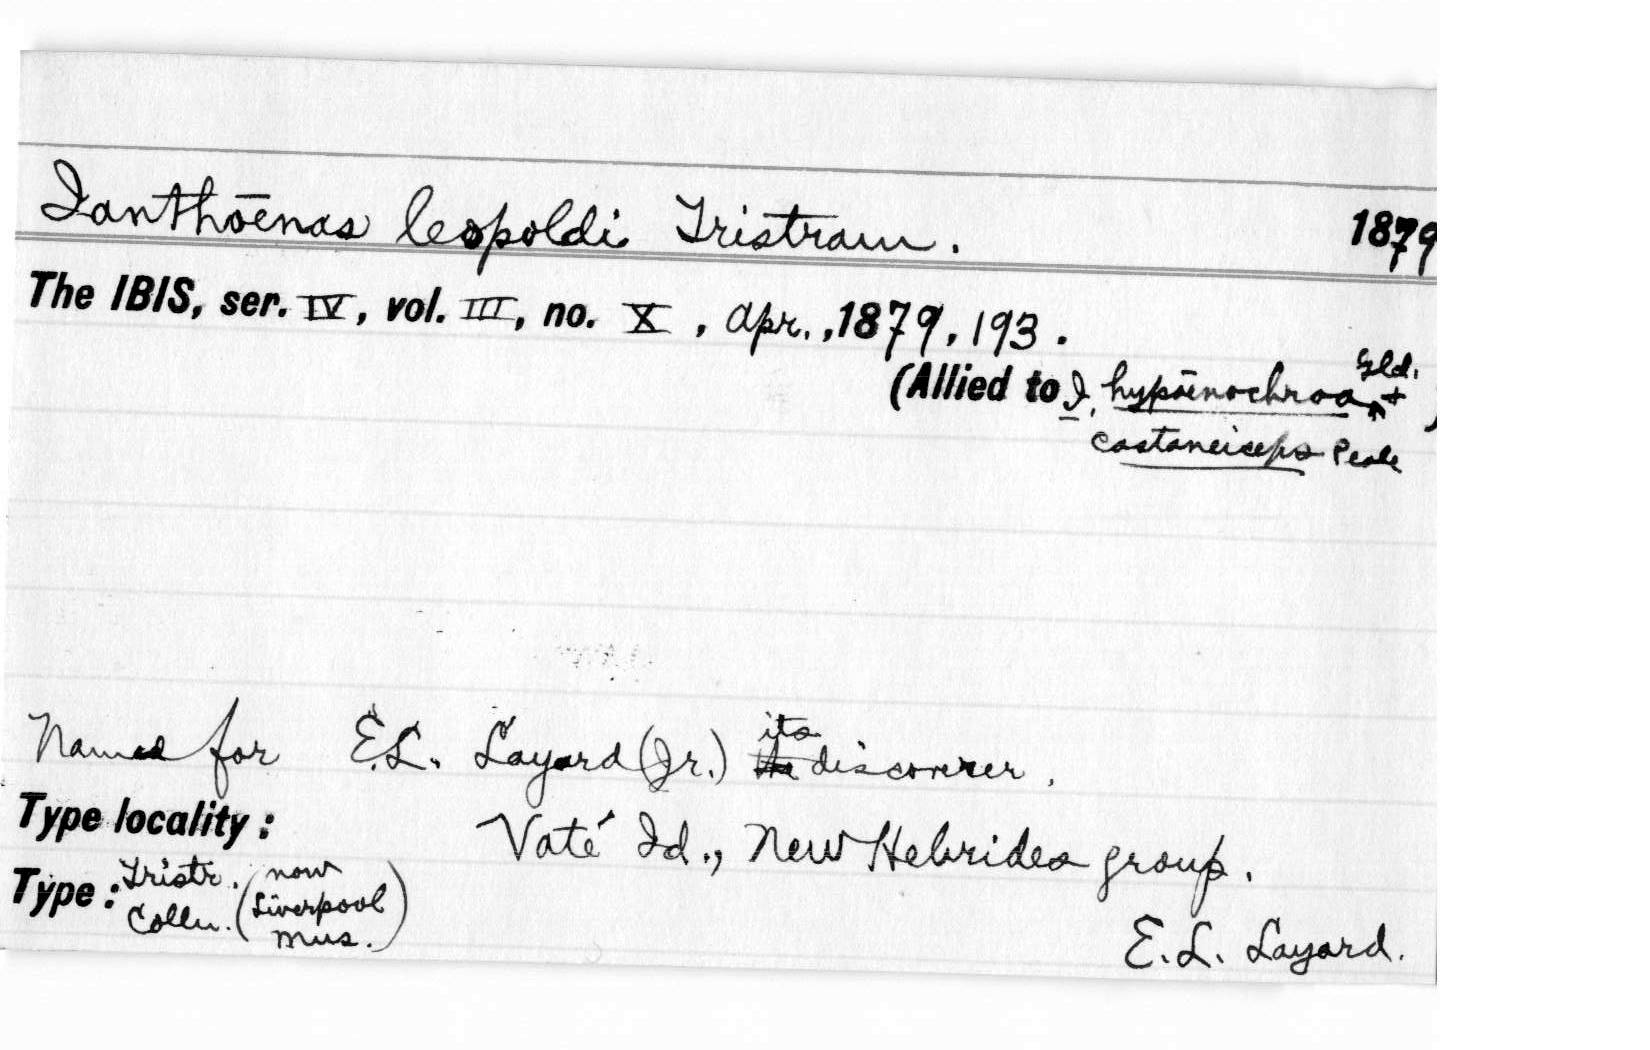 Ianthōenas leopoldi Tristram. 1879
The IBIS, ser. IV, vol. III, no. X, Apr., 1879, 193.
(Allied to I. hypōenochroa Gld. + )
castaneiceps Peale
Named for E.L. Layard (Jr.) the its discoverer.
Type locality: Vaté Id., New Hebrides group.
Type: Tristr. Colln. (now Liverpool Mus.)
E. L. Layard.